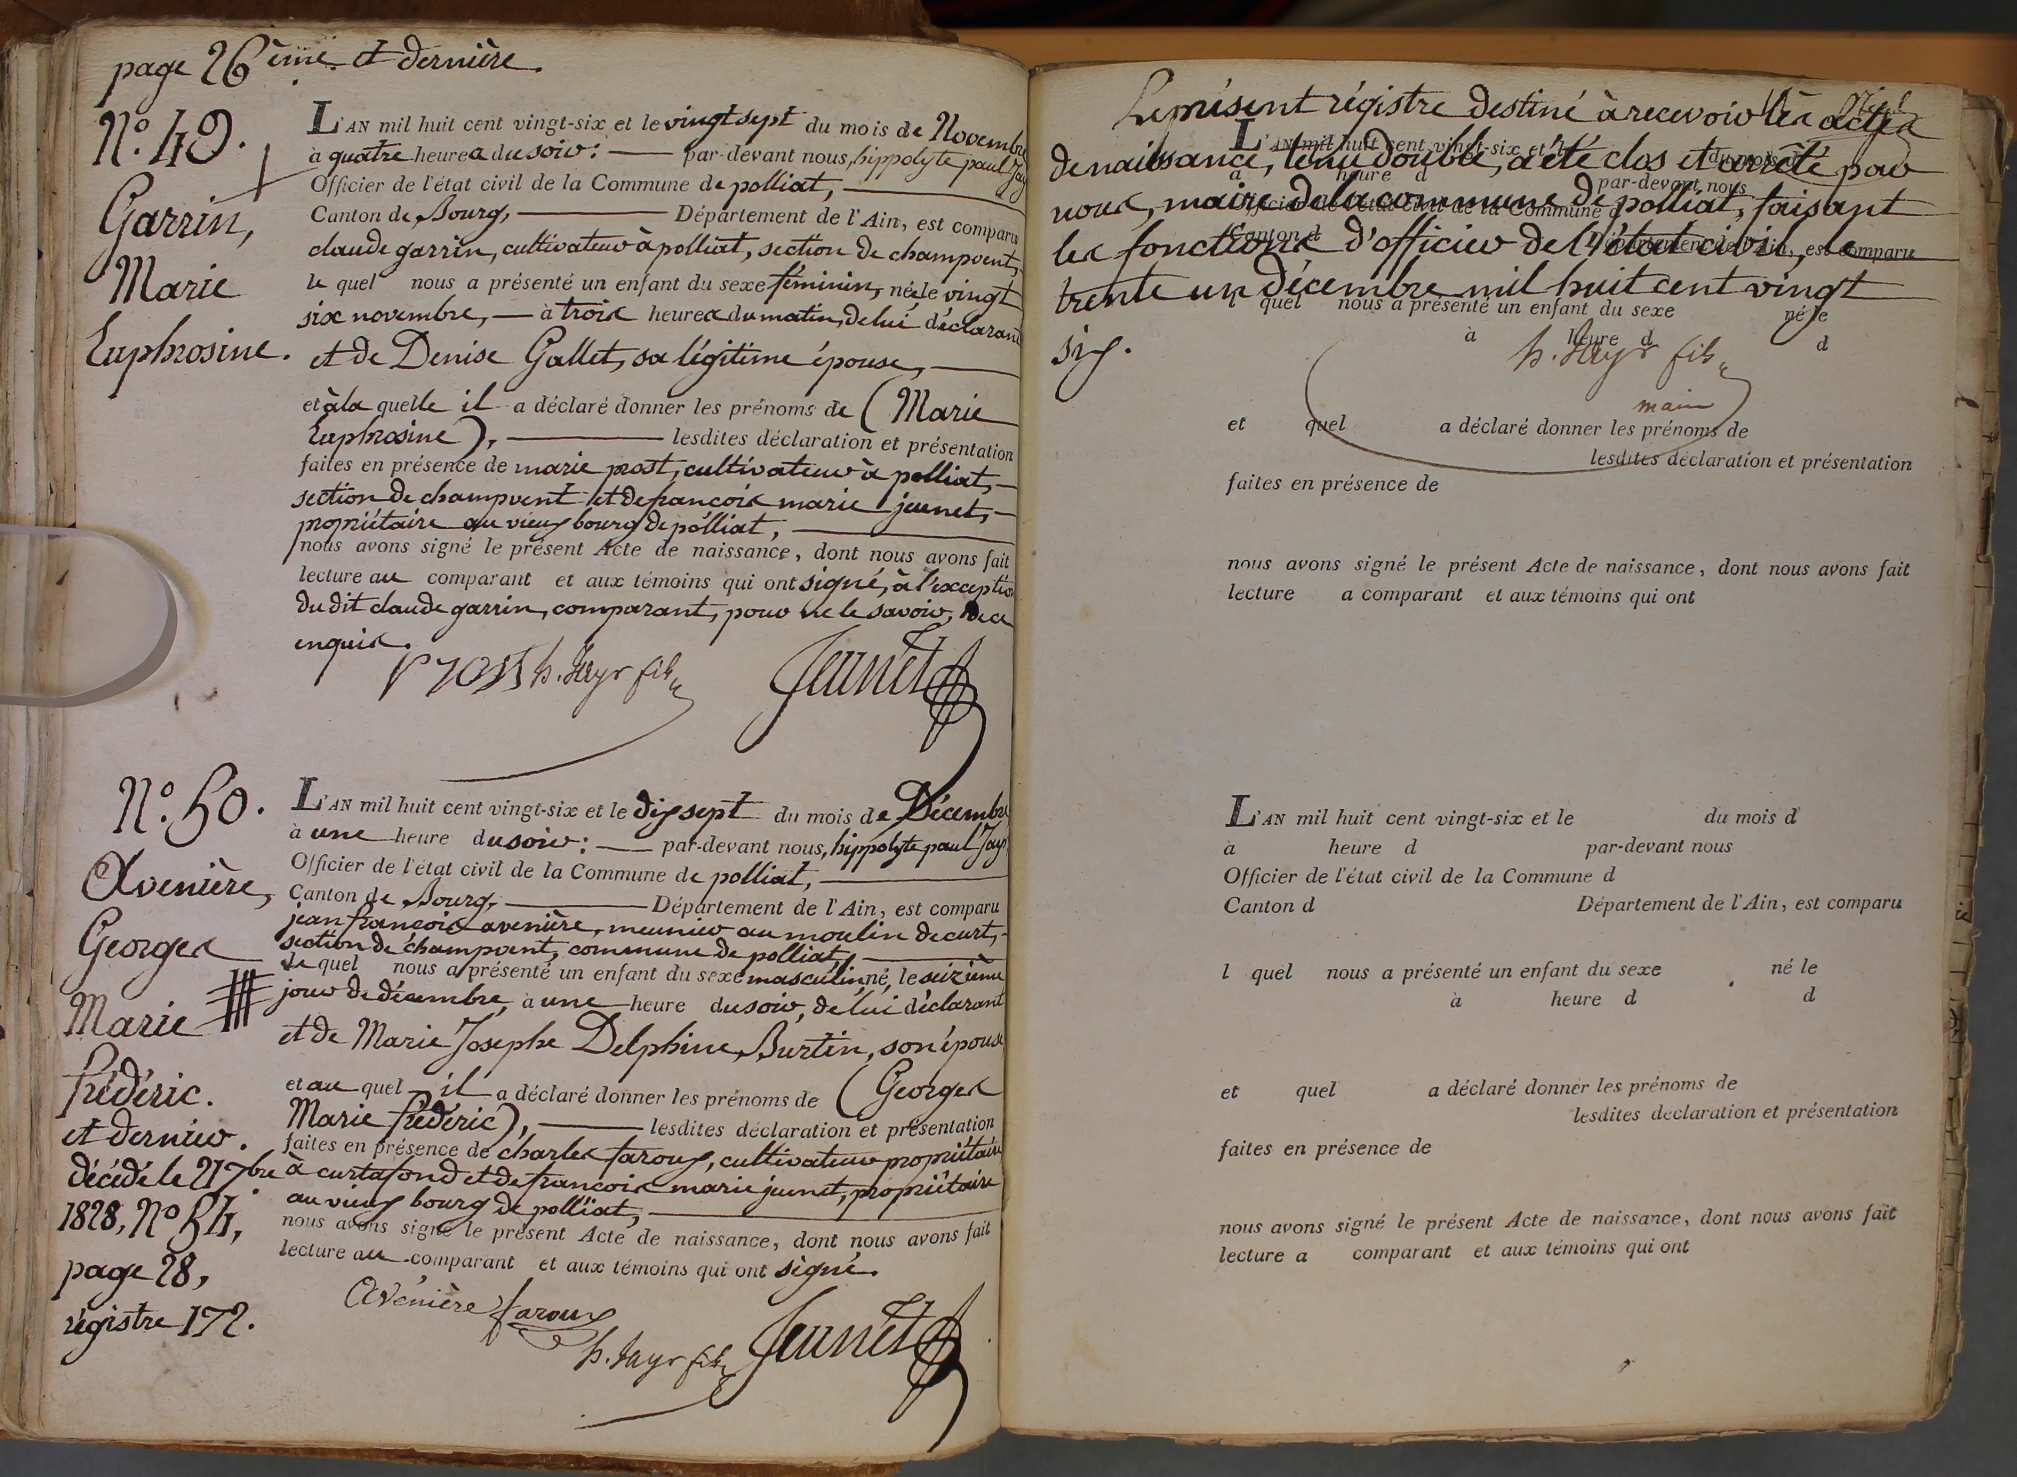 page 26ème et dernière.
N.o 49.
Garrin,
Marie
Euphrosine.
L'AN mil huit cent vingt-six et le vingt sept du mois de Novembre
à quatre heures du soir : par-devant nous, hippolyte paul Jayr
Officier de l'état civil de la Commune de polliat,
Canton de Bourg, Département de l'Ain, est comparu
claude garrin, cultivateur à polliat, section de champvent,
le quel nous a présenté un enfant du sexe féminin, née le vingt
six novembre, à trois heures du matin, de lui déclarant
et de Denise Gallet, sa légitime épouse,
et à la quelle il a déclaré donner les prénoms de (Marie
Euphrosine), lesdites déclaration et présentation
faites en présence de marie prost, cultivateur à polliat,
section de champvent et de françois marie jeunet,
propriétaire au vieux bourg de polliat,
nous avons signé le présent Acte de naissance, dont nous avons fait
lecture au comparant et aux témoins qui ont signé, à l'exception
du dit claude garrin, comparant, pour ne le savoir, de ce
enquis.
Prost h. Jayr fils Jeunet
N.o 50.
Avenière,
Georges
Marie
frédéric.
et dernier.
décédé le 21 7bre
1828, N.o 54,
page 28,
régistre 172.
L'AN mil huit cent vingt-six et le dix sept du mois de Décembre
à une heure du soir : par-devant nous, hippolyte paul Jayr
Officier de l'état civil de la Commune de polliat,
Canton de Bourg, Département de l'Ain, est comparu
jean françois avenière, meunier au moulin de curt,
section de champvent, commune de polliat,
le quel nous a présenté un enfant du sexe masculin, né le seizième
jour de décembre, à une heure du soir, de lui déclarant
et de Marie Josephe Delphine Burtin, son épouse
et au quel il a déclaré donner les prénoms de (Georges
Marie frédéric), lesdites déclaration et présentation
faites en présence de charles faroux, cultivateur propriétaire
à curtafond et de françois marie jeunet, propriétaire
au vieux bourg de polliat,
nous avons signé le présent Acte de naissance, dont nous avons fait
lecture au comparant et aux témoins qui ont signé.
Avenière faroux
h. Jayr fils Jeunet
Le présent régistre destiné à recevoir les actes
L'AN mil huit cent vingt-six et le du mois d
de naissance, tenu double, a été clos et arrêté par
à heure d par-devant nous
nous, maire de la commune de polliat, faisant
Officier de l'état civil de la Commune d
Canton d Département de l'Ain, est comparu
les fonctions d'officier de l'état civil, le
trente un décembre mil huit cent vingt
l quel nous a présenté un enfant du sexe né le
six.
à heure d d
h. Jayr fils
maire
et quel a déclaré donner les prénoms de
lesdites déclaration et présentation
faites en présence de
nous avons signé le présent Acte de naissance, dont nous avons fait
lecture a comparant et aux témoins qui ont
L'AN mil huit cent vingt-six et le du mois d
à heure d par-devant nous
Officier de l'état civil de la Commune d
Canton d Département de l'Ain, est comparu
l quel nous a présenté un enfant du sexe né le
à heure d d
et quel a déclaré donner les prénoms de
lesdites déclaration et présentation
faites en présence de
nous avons signé le présent Acte de naissance, dont nous avons fait
lecture a comparant et aux témoins qui ont